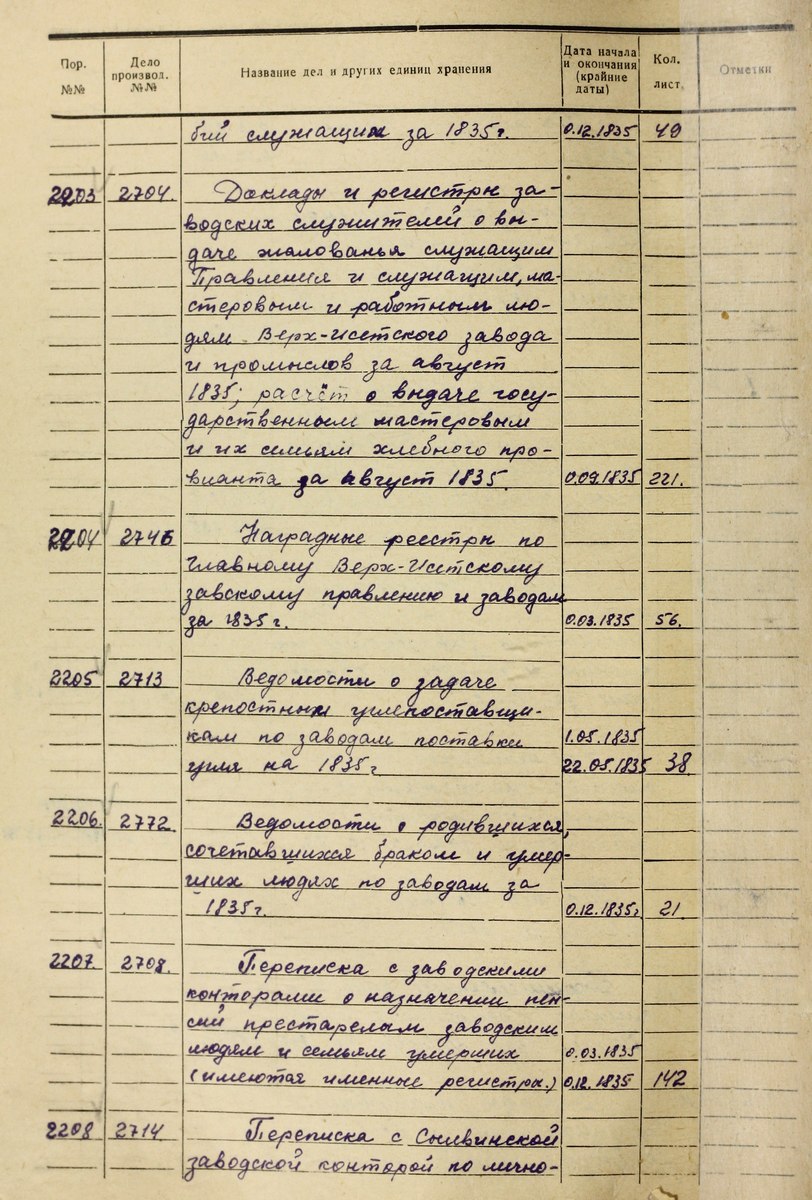 Пор. №№ Дело производ. №№ Название дел и других единиц хранения Дата начала и окончания (крайние даты) Кол. лист. Отметки
бий служащим за 1835г. 0.12.1835 49
2203 2704. Доклады и регистры за-
водских служителей о вы-
даче жалованья служащим
Правления и служащим, ма-
стеровым и работным лю-
дям Верх-Исетского завода
и промыслов за август
1835; расчёт о выдаче госу-
дарственным мастеровым
и их семьям хлебного про-
вианта за август 1835. 0.09.1835 221.
2204 2746 Наградные реестры по
главному Верх-Исетскому
завскому правлению и заводам
за 1835г. 0.03.1835 56.
2205 2713 Ведомости о задаче
крепостным углепоставщи-
кам по заводам поставки 1.05.1835
угля на 1835г 22.05.1835 38.
2206. 2772. Ведомости о родившихся,
сочетавшихся браком и умер-
ших людях по заводам за
1835г. 0.12.1835г 21.
2207. 2708. Переписка с заводскими
конторами о назначении пен-
сий престарелым заводским
людям и семьям умерших 0.03.1835
(имеются именные регистры.) 0.12.1835 142
2208 2714. Переписка с Сылвинской
заводской конторой по лично-